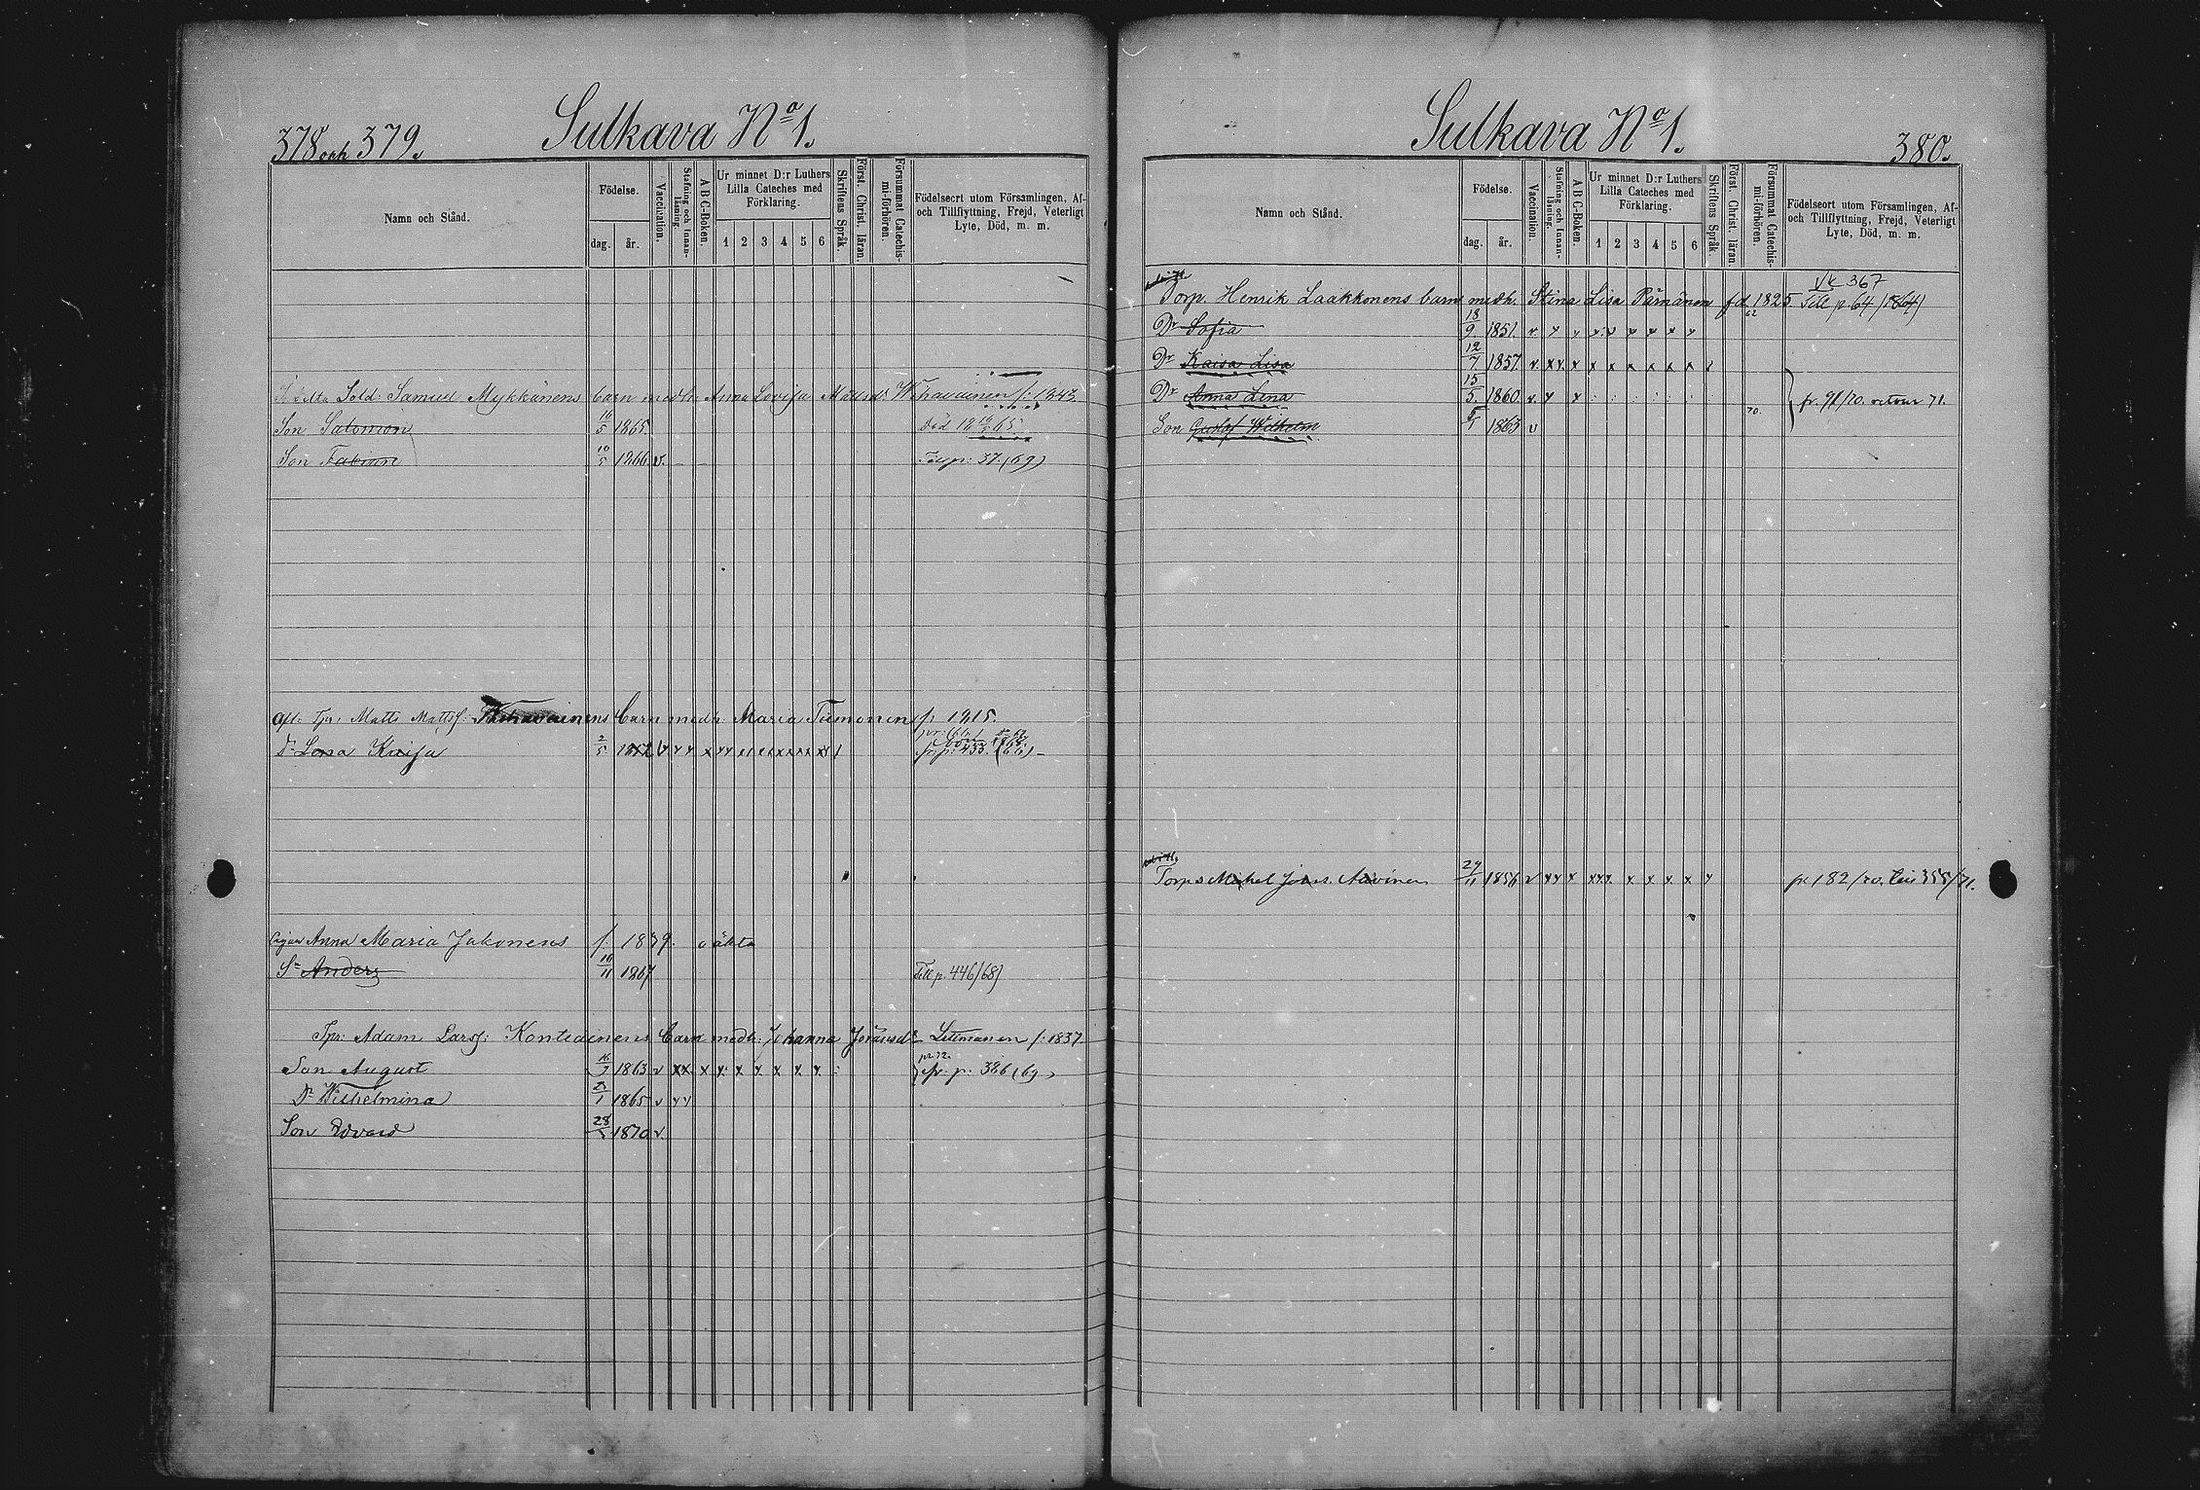 378 och 379.
Sulkava No 1.
Namn och Stånd.
Födelse.
dag. år.
Vaccination.
Stafning och Innanläsning.
A B C-Boken.
Ur minnet D:r Luthers Lilla Cateches med Förklaring.
1 2 3 4 5 6
Skriftens Språk.
Först. Christ. läran.
Försummat Catechismi-förhören.
Födelseort utom Församlingen, Af- och Tillflyttning, Frejd, Veterligt Lyte, Död, m. m.
Sold: Samuel Mykkänens barn medh: Anna Lovisa f: 1843.
Son Salomon 5 1865. Död 65
Son Fabian 10/5 1866. v. Till p: 37. (69)
Afl: Tpr: Matts Mattsf: barn medh: Maria Timonen f: 1815.
Dr Lena Kaisa 2/5 v x x x x
fr: p: 433. (66)
Anna Maria Jakonens f: 1839. oäkta
Sn Anders 16/11 1867 Till p. 446/68)
Tpr: Adam Larsf: Kontiainens barn medh: Johanna Jöransdr f: 1837
Son August 16/7 1863 v x x x x x x x x x fr: p: 386 (69)
Dr Wilhelmina 1865 v
Son Edvard 28/5 1870 v.
Sulkava No 1.
380.
Namn och Stånd.
Födelse.
dag. år.
Vaccination.
Stafning och Innanläsning.
A B C-Boken.
Ur minnet D:r Luthers Lilla Cateches med Förklaring.
1 2 3 4 5 6
Skriftens Språk.
Först. Christ. läran.
Försummat Catechismi-förhören.
Födelseort utom Församlingen, Af- och Tillflyttning, Frejd, Veterligt Lyte, Död, m. m.
367
Torp. Henrik Laakkonens barn medh. Stina Lisa Pärnänen fd 1825 Till p 64/1864)
Dr Sofia 18/9 1851. v
Dr Kaisa Lisa 12/7 1857. v. x x x x x x x x x
Dr Anna Lena 15/5 1860. v. x x
70. fr. 91/70. retour 71.
Son Gustaf Wilhelm 1863 v
Torps Mikel 29/11 1856 v x x x x x x x x x x x fr. 182/70.